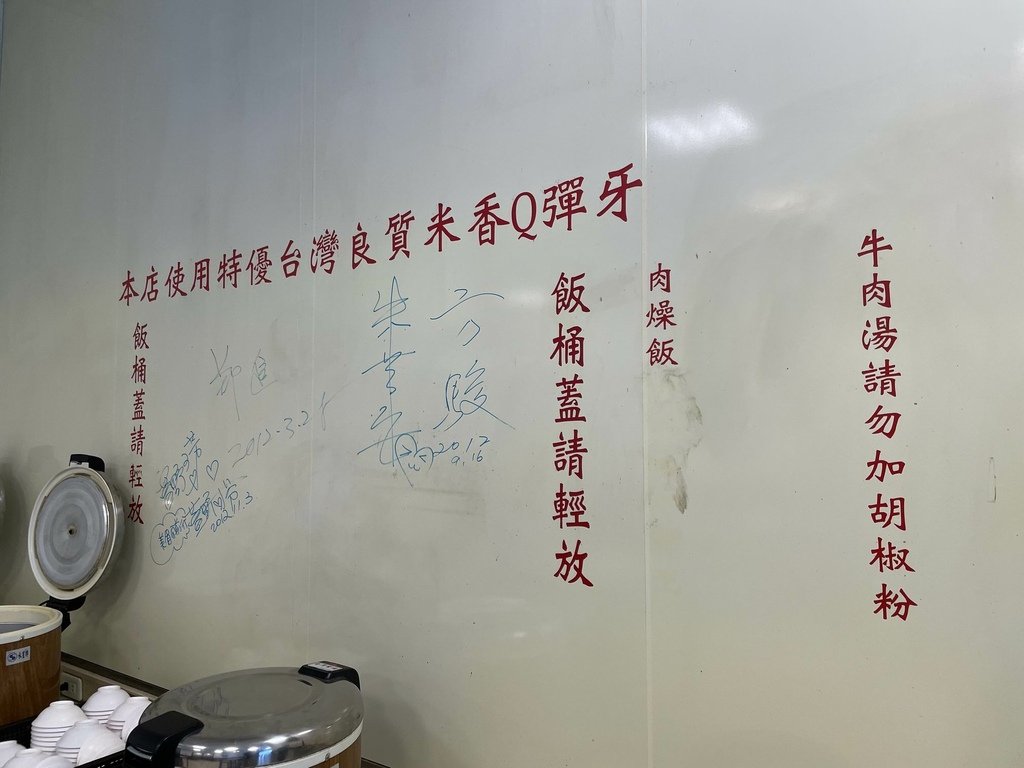 本店使用特優台灣良質米香Q彈牙
飯桶蓋請輕放
飯桶蓋請輕放
肉燥飯
牛肉湯請勿加胡椒粉
方
駿
2012
9.16
2012.3.2
2012